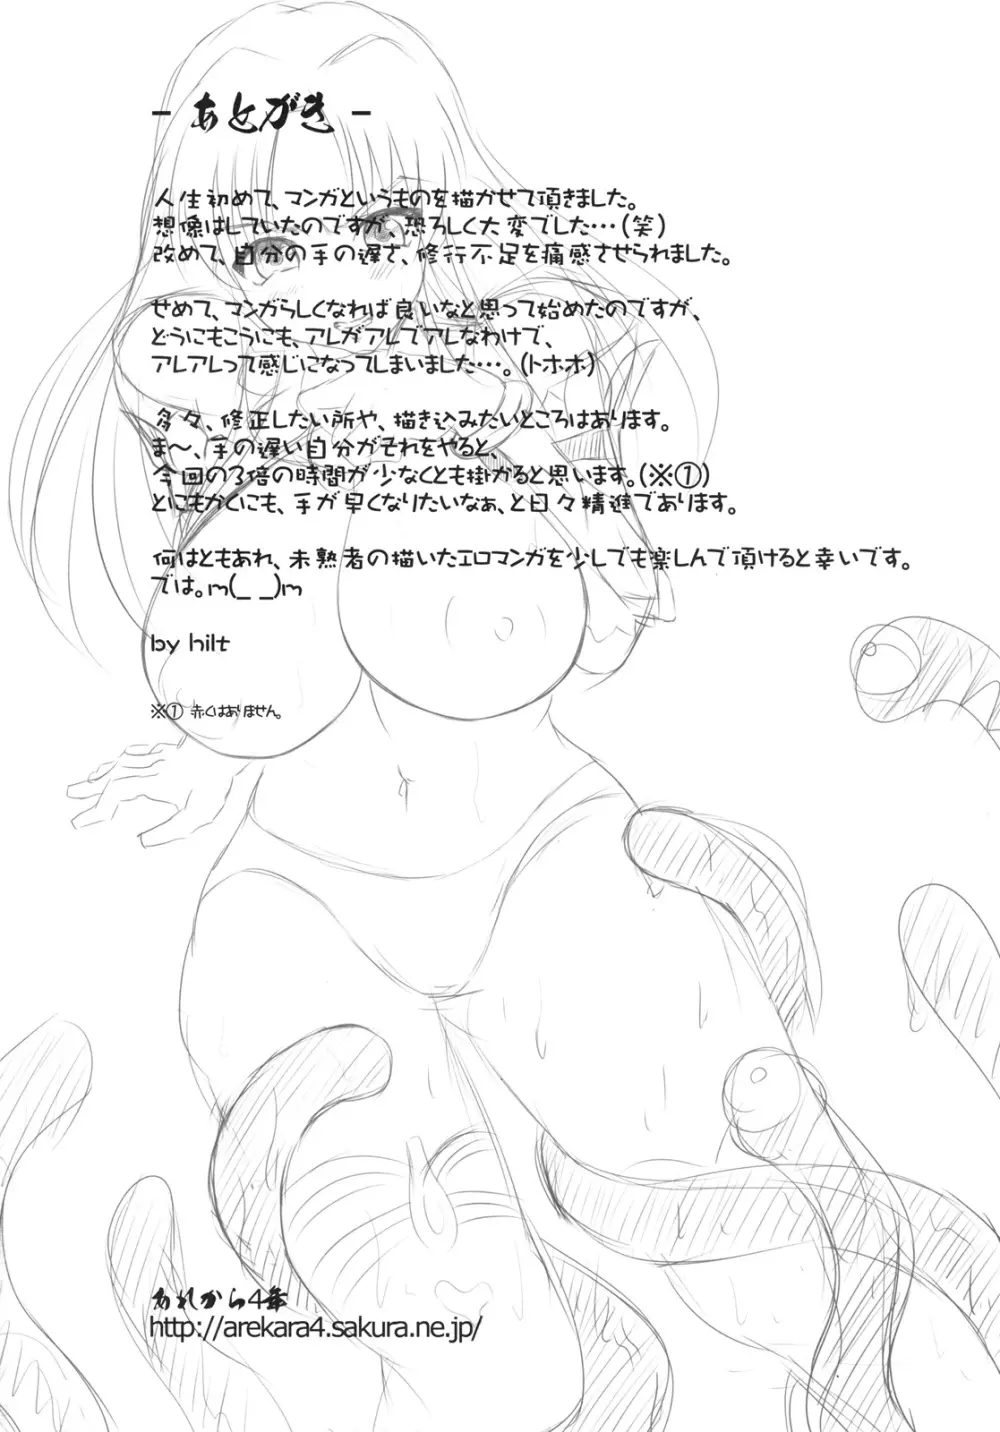 - あとがき -
人生初めて、マンガというものを描かせて頂きました。
想像はしていたのですが、恐ろしく大変でした…(笑)
改めて、自分の手の遅さ、修行不足を痛感させられました。
せめて、マンガらしくなれば良いなと思って始めたのですが、
どうにもこうにも、アレがアレでアレなわけで、
アレアレって感じになってしまいました…。(トホホ)
多々、修正したい所や、描き込みたいところはあります。
ま～、手の遅い自分がそれをやると、
今回の3倍の時間が少なくとも掛かると思います。(※①)
とにもかくにも、手が早くなりたいなぁ、と日々精進であります。
何はともあれ、未熟者の描いたエロマンガを少しでも楽しんで頂けると幸いです。
では。m(_ _)m
by hilt
※① 赤くはありません。
あれから4年
http://arekara4.sakura.ne.jp/